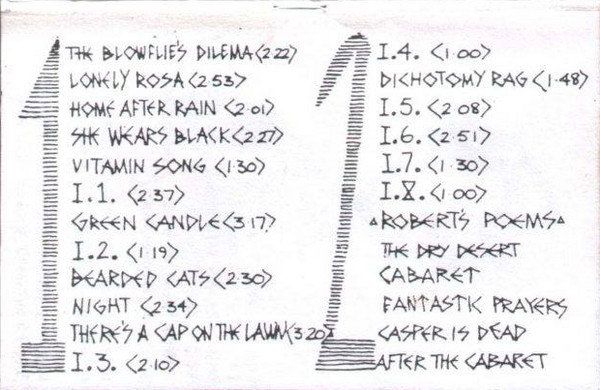 1
THE BLOWFLIE'S DILEMA <2·22>
LONELY ROSA <2·53>
HOME AFTER RAIN <2·01>
SHE WEARS BLACK <2·27>
VITAMIN SONG <1·30>
I.1. <2·37>
GREEN CANDLE <3·17>
I.2. <1·19>
BEARDED CATS <2·30>
NIGHT <2·34>
THERE'S A CAP ON THE LAWN <3·20>
I.3. <2·10>
2
I.4. <1·00>
DICHOTOMY RAG <1·48>
I.5. <2·08>
I.6. <2·51>
I.7. <1·30>
I.8. <1·00>
▵ROBERT'S POEMS▵
THE DRY DESERT
CABARET
FANTASTIC PRAYERS
CASPER IS DEAD
AFTER THE CABARET